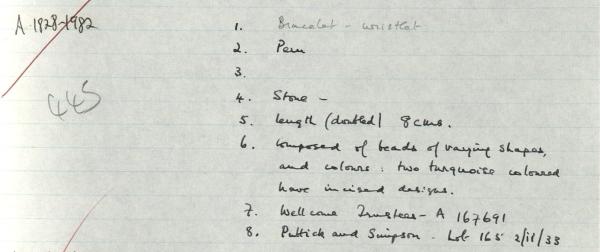 A.1928-1982
445
1. Bracelet - wristlet
2. Peru
3.
4. Stone -
5. length (doubled) 8cms.
6. Composed of beads of varying shapes,
and colours: two turquoise coloured
have incised designs.
7. Wellcome Trustees - A 167691
8. Puttick and Simpson. Lot 165 2/11/33